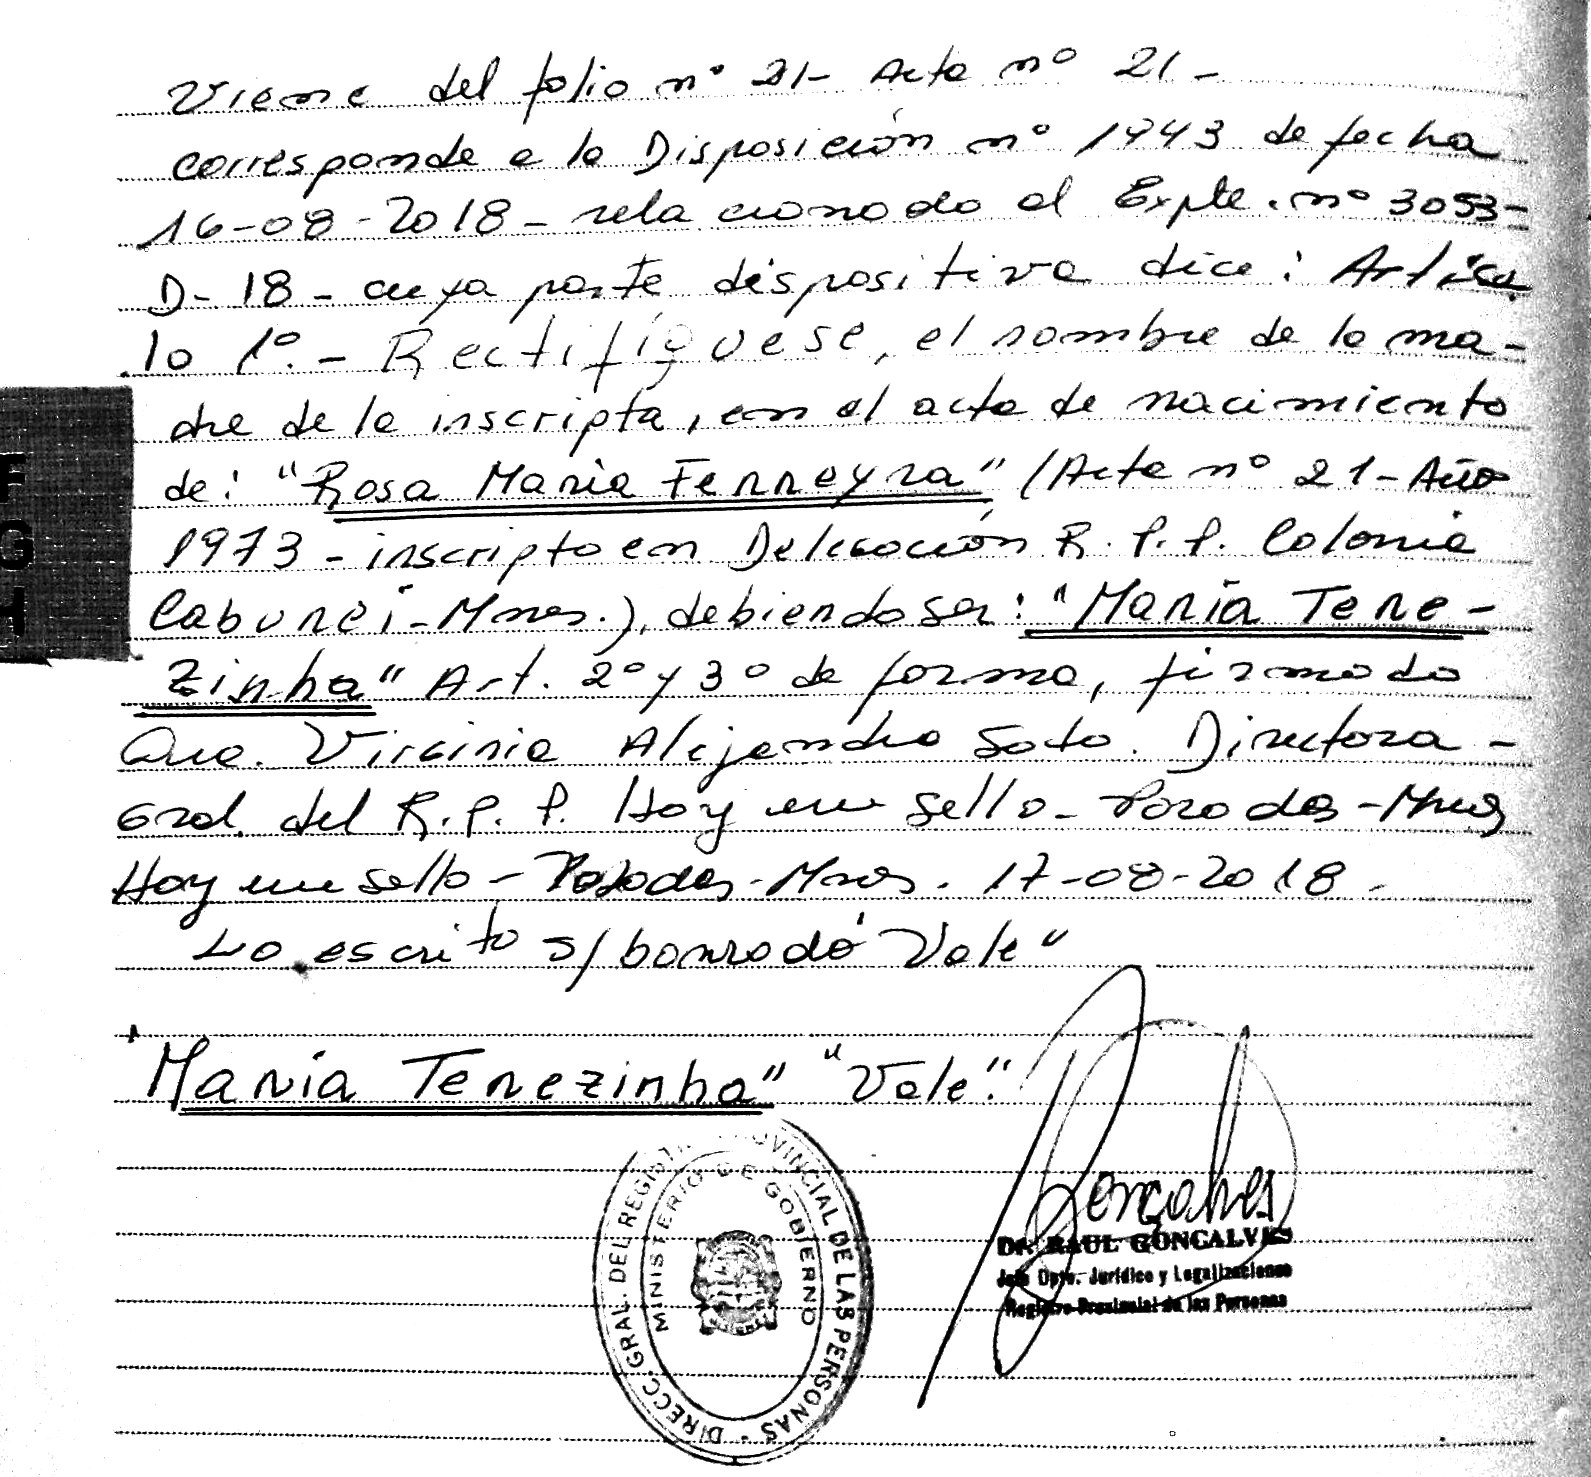 Viene del folio nº 21- Acta nº 21-
corresponde a la Disposición nº 1943 de fecha
16-08-2018- relacionado al Expte. nº 3053-
D-18- cuya parte dispositiva dice: Artícu
lo 1º.- Rectifíquese, el nombre de la ma-
dre de la inscripta, en el acta de nacimiento
de: "Rosa María Ferreyra" (Acta nº 21-Año
1973-inscripto en Delegación R.P.P. Colonia
Caburei-Mnes.), debiendo ser: "María Tere-
zinha" Art. 2º y 3º de forma, firmado
Virginia Alejandra Soto. Directora-
Gral. del R.P.P. Hay un sello- Posadas-Mnes
Hay un sello- Posadas-Mnes. 17-08-2018-
Lo escrito s/borrado Vale"
"María Terezinha" "Vale".
DIRECC. GRAL. DEL REGISTRO PROVINCIAL DE LAS PERSONAS -
MINISTERIO DE GOBIERNO
Goncalves
Dr. RAUL GONCALVES
Jefe Dpto. Jurídico y Legalizaciones
Registro Provincial de las Personas
F
G